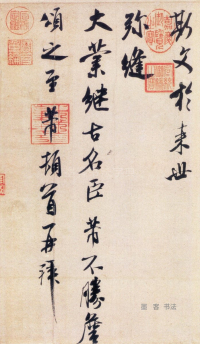 斯文於来世
弥縫
大業継古名臣芾不勝詹
頌之至芾頓首再拜
书法